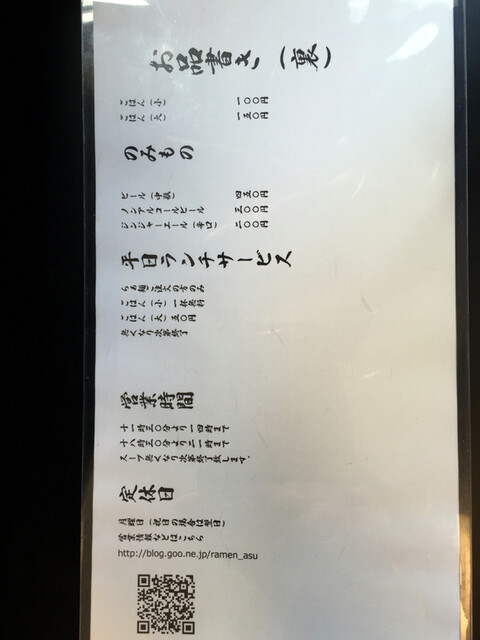 お品書き（裏）
ごはん（小） 一〇〇円
ごはん（大） 一五〇円
のみもの
ビール（中瓶） 四五〇円
ノンアルコールビール 三〇〇円
ジンジャーエール（辛口） 二〇〇円
平日ランチサービス
らぁ麺ご注文の方のみ
ごはん（小）一杯無料
ごはん（大）五〇円
無くなり次第終了
営業時間
十一時三〇分より一四時まで
十八時三〇分より二一時まで
スープ無くなり次第終了致します。
定休日
月曜日（祝日の場合は翌日）
営業情報などはこちら
http://blog.goo.ne.jp/ramen_asu